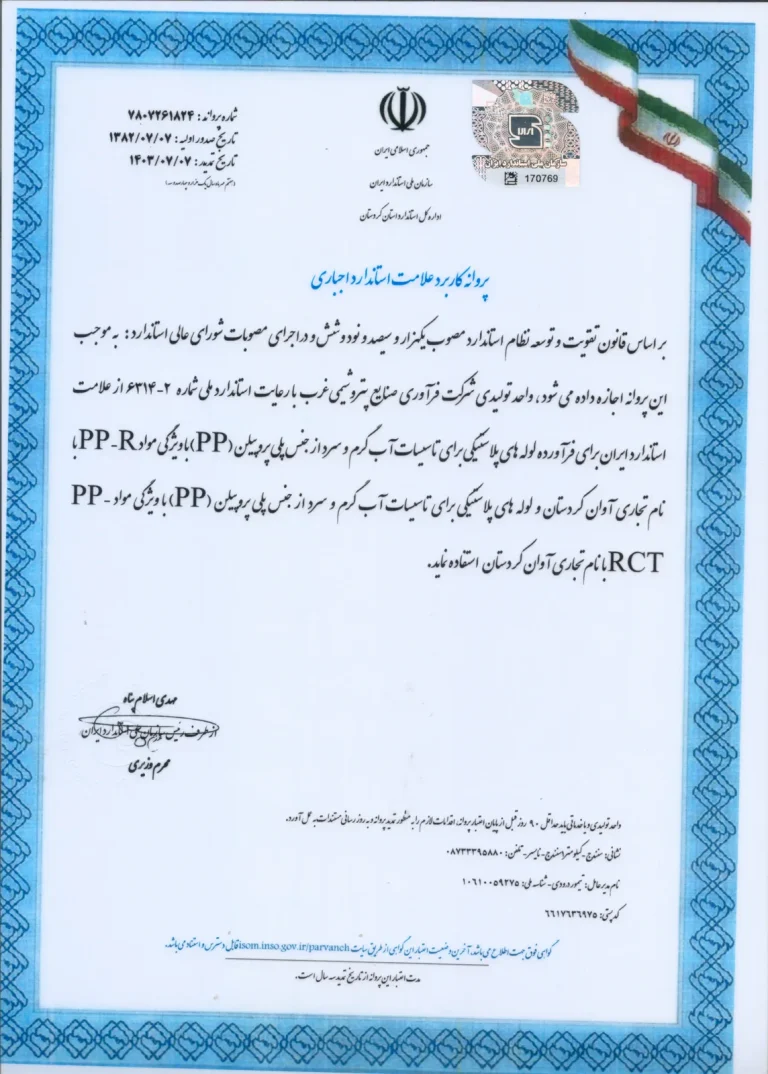 شماره پروانه: ۷۸۰۷۲۶۱۸۲۴
تاریخ صدور اولیه: ۱۳۸۲/۰۷/۰۷
تاریخ تمدید: ۱۴۰۳/۰۷/۰۷
(هفتم مهر ماه سال یک هزار و چهارصد و سه)
جمهوری اسلامی ایران
سازمان ملی استاندارد ایران
اداره کل استاندارد استان کردستان
سازمان ملی استاندارد ایران
170769
پروانه کاربرد علامت استاندارد اجباری
بر اساس قانون تقویت و توسعه نظام استاندارد مصوب یکهزار و سیصد و نود و شش و در اجرای مصوبات شورای عالی استاندارد: به موجب
این پروانه اجازه داده می شود، واحد تولیدی شرکت فرآوری صنایع پتروشیمی غرب با رعایت استاندارد ملی شماره ۲-۶۳۱۴ از علامت
استاندارد ایران برای فرآورده لوله های پلاستیکی برای تاسیسات آب گرم و سرد از جنس پلی پروپیلن (PP) با ویژگی مواد PP-R با
نام تجاری آوان کردستان و لوله های پلاستیکی برای تاسیسات آب گرم و سرد از جنس پلی پروپیلن (PP) با ویژگی مواد PP-
RCT با نام تجاری آوان کردستان استفاده نماید.
مهدی اسلام پناه
از طرف رئیس سازمان ملی استاندارد ایران
محرم وزیری
واحد تولیدی و یا خدماتی باید حداقل ۹۰ روز قبل از پایان اعتبار پروانه، اقدامات لازم را به منظور تمدید پروانه و به روز رسانی مستندات به عمل آورد.
نشانی: سنندج-کیلومتر سنندج-نایسر-تلفن: ۰۸۷۳۳۳۹۵۸۸۰
نام مدیر عامل: تیمور درودی-شناسه ملی: ۱۰۶۱۰۰۵۹۲۷۵
کد پستی: ۶۶۱۷۶۳۶۹۷۵
گواهی فوق جهت اطلاع می باشد، آخرین وضعیت اعتبار این گواهی از طریق سایت isom.inso.gov.ir/parvanch قابل دسترس و استناد می باشد.
مدت اعتبار این پروانه از تاریخ تمدید سه سال است.